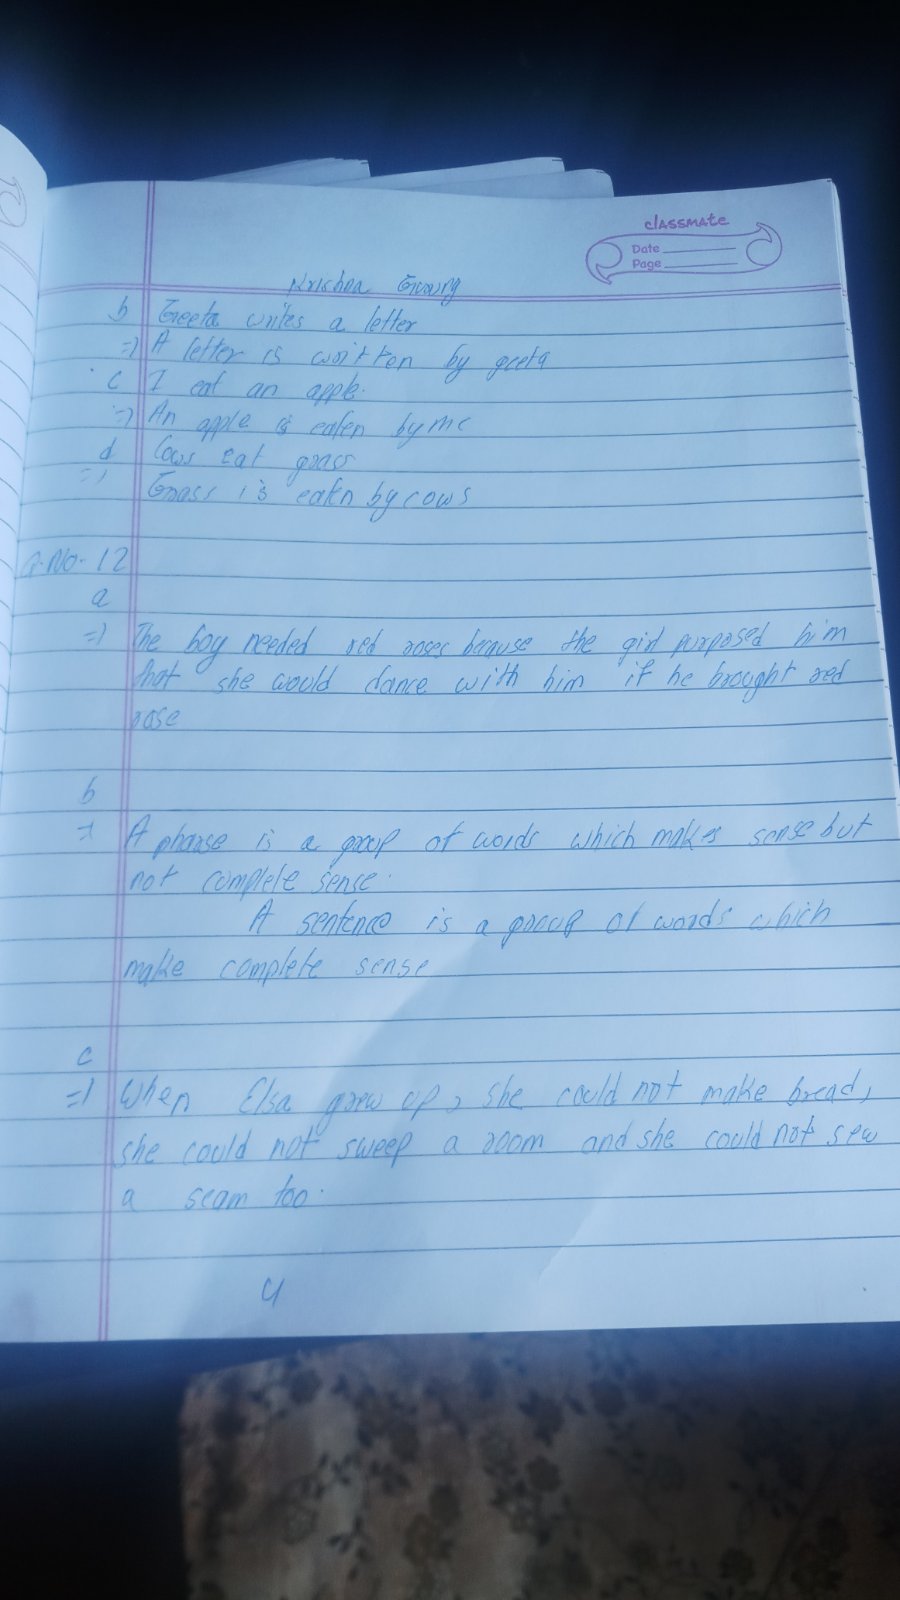 classmate
Date
Page
Krishna Gurung
b Geeta writes a letter
=) A letter is written by geeta
c I eat an apple.
=) An apple is eaten by me
d Cows eat grass
=)
Grass is eaten by cows
Q.No. 12
a
=) The boy needed red roses because the girl purposed him
that she would dance with him if he brought red
rose
b
=) A pharse is a group of words which makes sense but
not complete sense.
A sentence is a group of words which
make complete sense
c
=) When Elsa grew up, she could not make bread,
she could not sweep a room and she could not sew
a seam too.
4